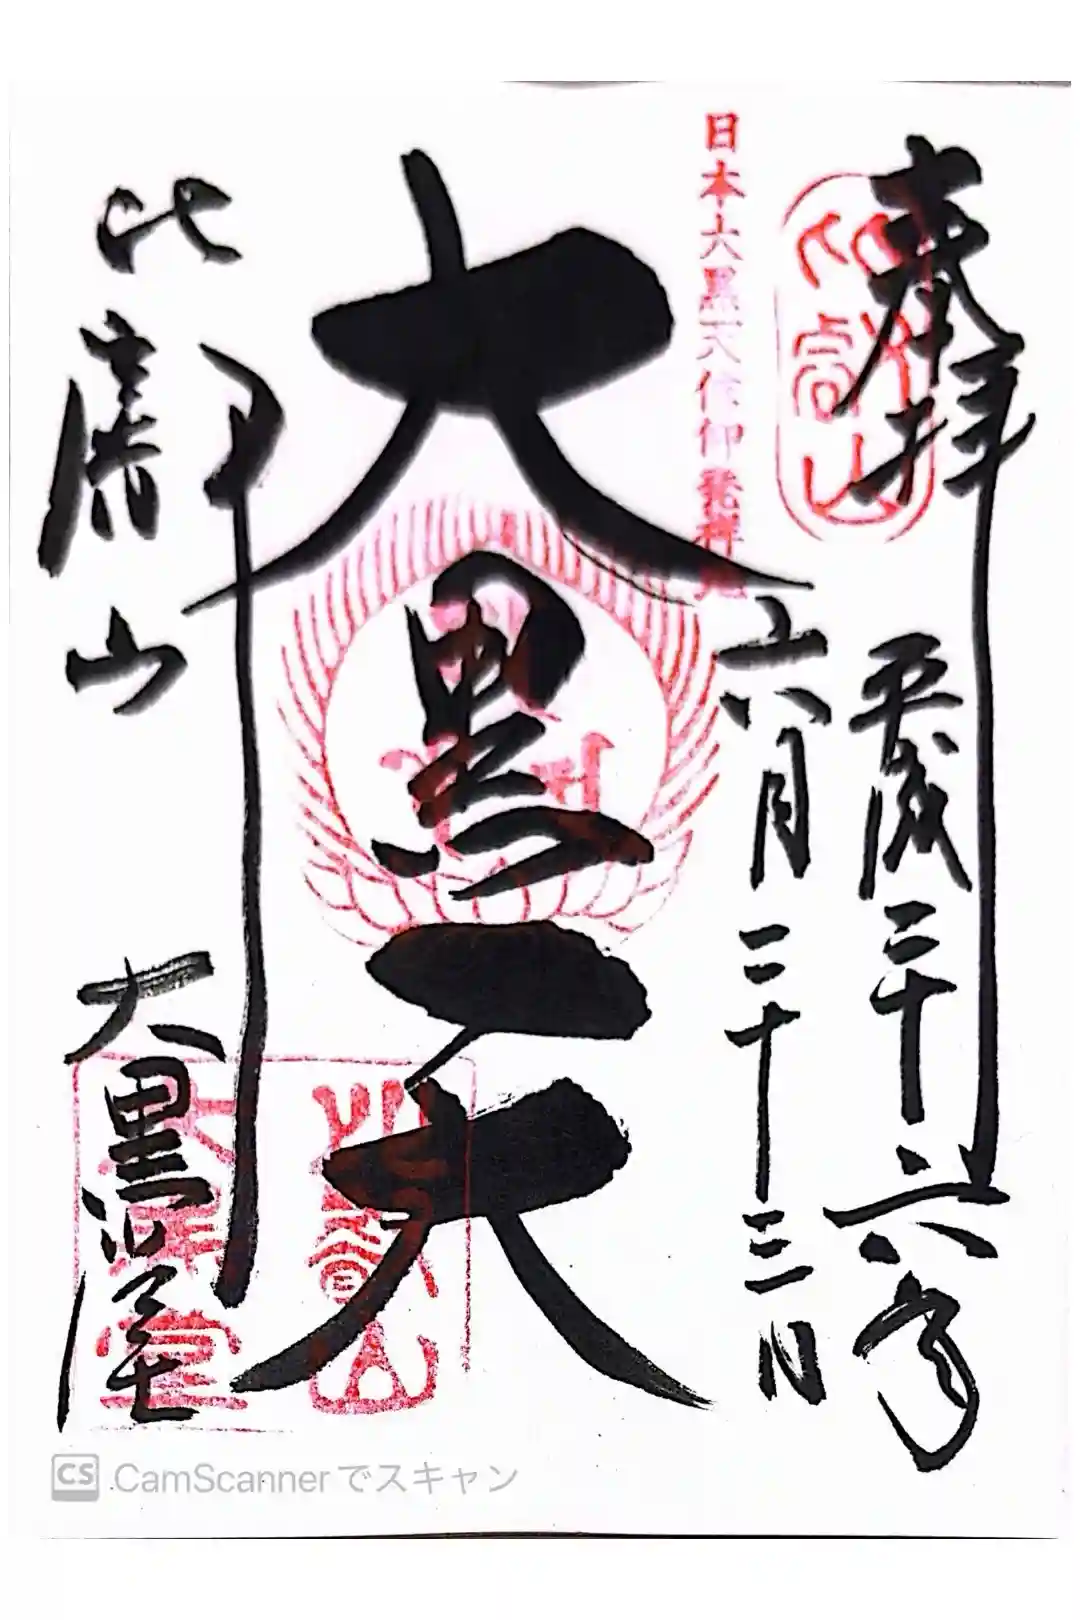 奉拝
平成二十六年
六月二十三日
日本大黒天信仰発祥地
大黒天
比叡山
大黒堂
比叡山
大黒堂
CS CamScannerでスキャン